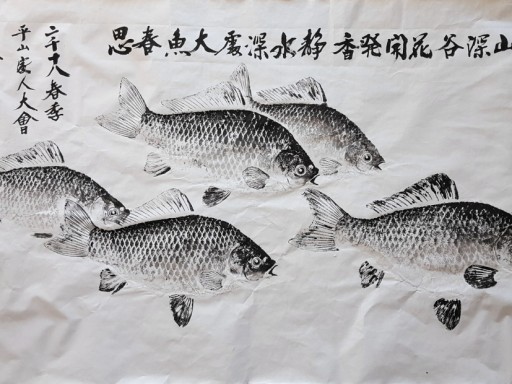 山深谷花開発香 静水深處大魚春思
二千十八春季
平山人大會